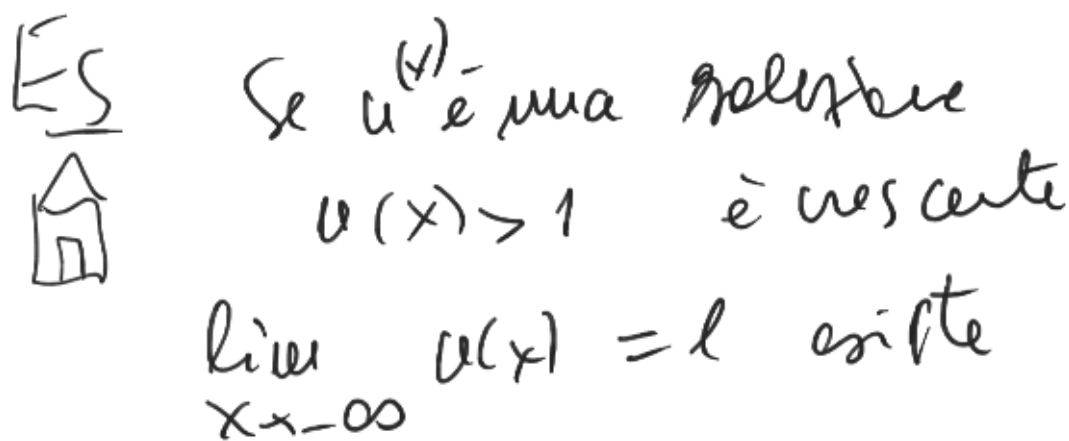 Es Se u(x) è una soluzione
u(x) > 1 è crescente
lim u(x) = l esiste
x→-∞